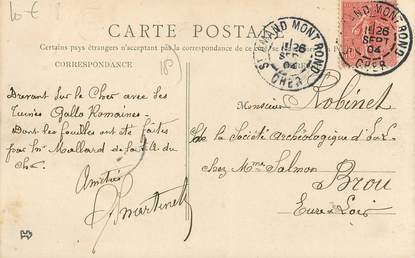 10 €
CARTE POSTALE
Certains pays étrangers n'acceptant pas la correspondance de ce côté
CORRESPONDANCE
18)
ST AMAND MONT-ROND
26
SEPT
04
CHER
ST AMAND MONT-ROND
26
SEPT
04
CHER
Drevant sur le Cher avec ses
ruines Gallo Romaines.
Dont les fouilles ont été faites
par Mr Mallard de la
Cher.
Amitiés
Martinet
Monsieur Robinet
de la Société Archéologique d'E&L
chez Mme Salmon
Brou
Eure & Loir